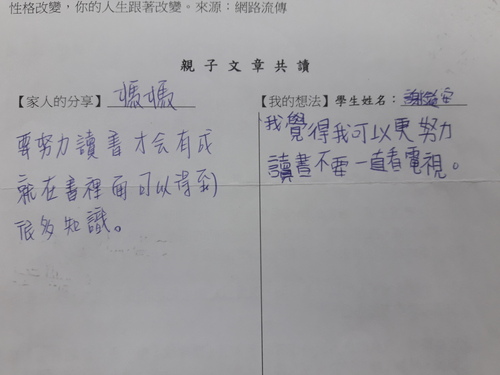 性格改變，你的人生跟著改變。來源：網路流傳
親子文章共讀
【家人的分享】媽媽
要努力讀書才會有成
就在書裡面可以得到
很多知識。
【我的想法】學生姓名：謝
我覺得我可以更努力
讀書不要一直看電視。